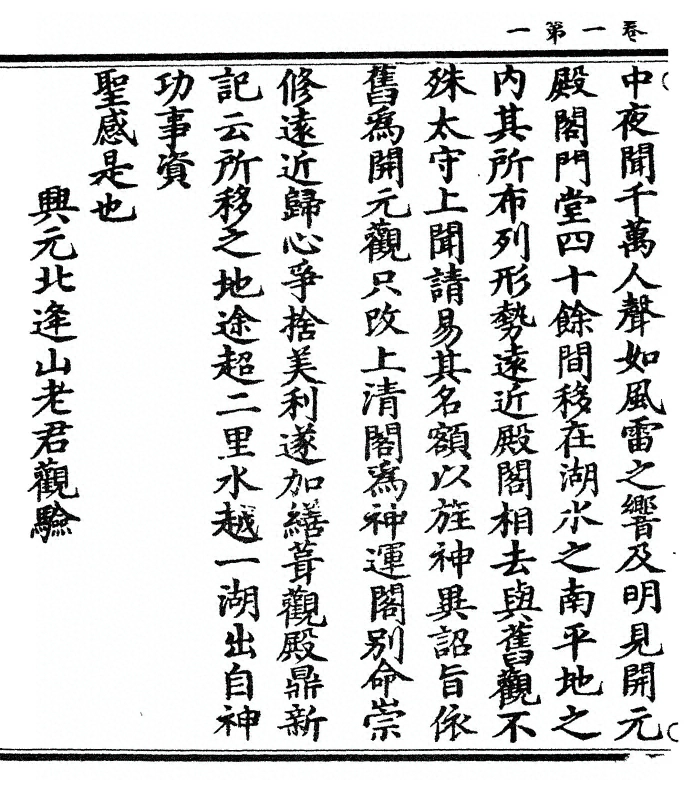 卷一第一
中夜聞千萬人聲如風雷之響及明見開元
殿閣門堂四十餘間移在湖水之南平地之
內其所布列形勢遠近殿閣相去與舊觀不
殊太守上聞請易其名額以旌神異詔旨依
舊為開元觀只改上清閣為神運閣別命崇
修遠近歸心爭捨美利遂加繕葺觀殿鼎新
記云所移之地途超二里水越一湖出自神
功事資
聖感是也
興元北逄山老君觀驗